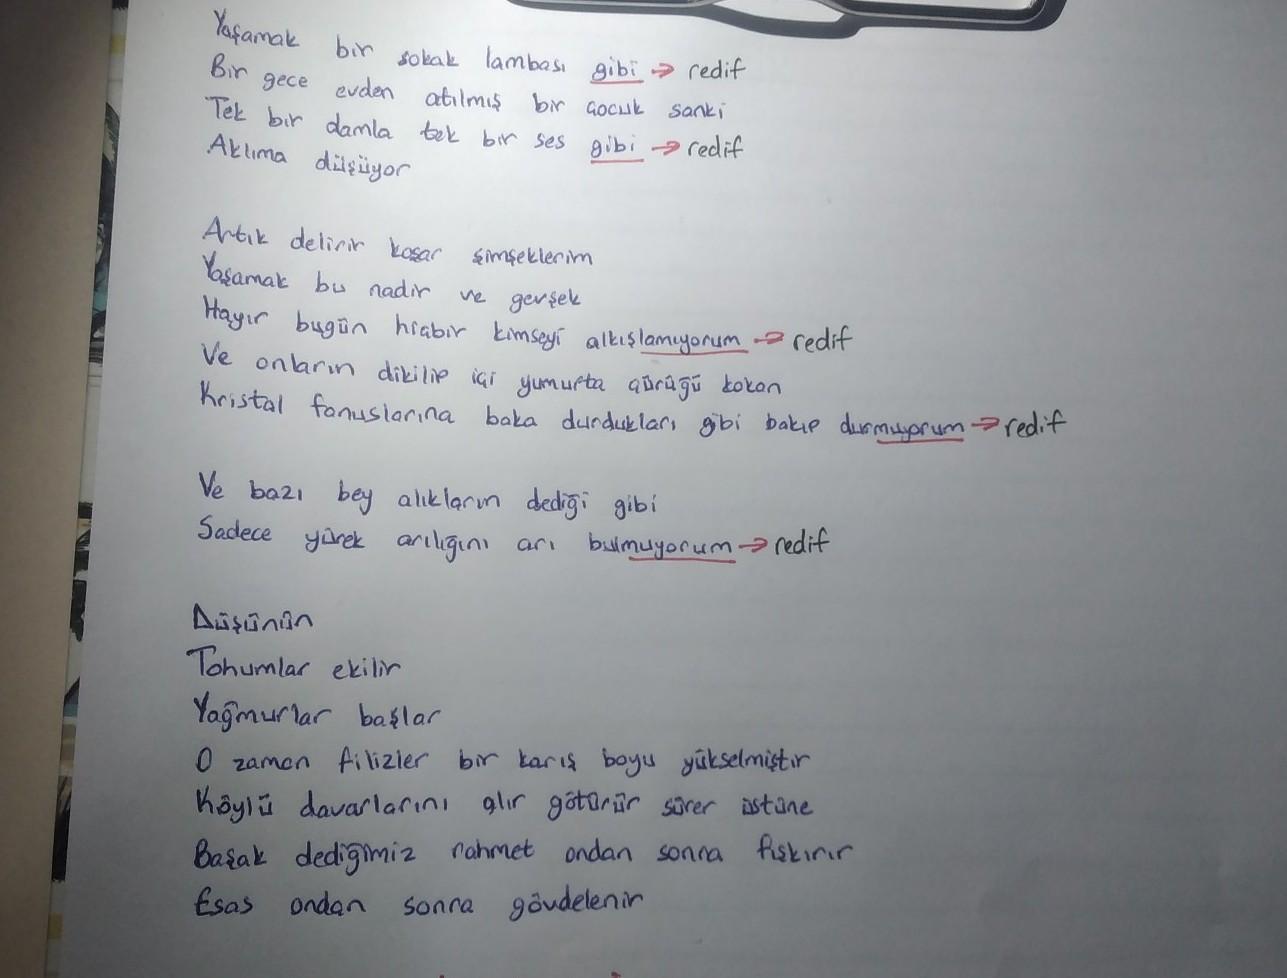 Yaşamak bir sokak lambası gibi → redif
Bir gece evden atılmış bir çocuk sanki
Tek bir damla tek bir ses gibi → redif
Aklıma düşüyor
Artık delirir koşar şimşeklerim
Yaşamak bu nadir ve gevşek
Hayır bugün hiçbir kimseyi alkışlamıyorum → redif
Ve onların dikilip içi yumurta çürüğü kokan
Kristal fanuslarına baka durdukları gibi bakıp durmuyorum → redif
Ve bazı bey alıkların dediği gibi
Sadece yürek arılığını arı bulmuyorum → redif
Düşünün
Tohumlar ekilir
Yağmurlar başlar
O zaman filizler bir karış boyu yükselmiştir
Köylü davarlarını alır götürür sürer üstüne
Başak dediğimiz rahmet ondan sonra fışkırır
Esas ondan sonra gövdelenir